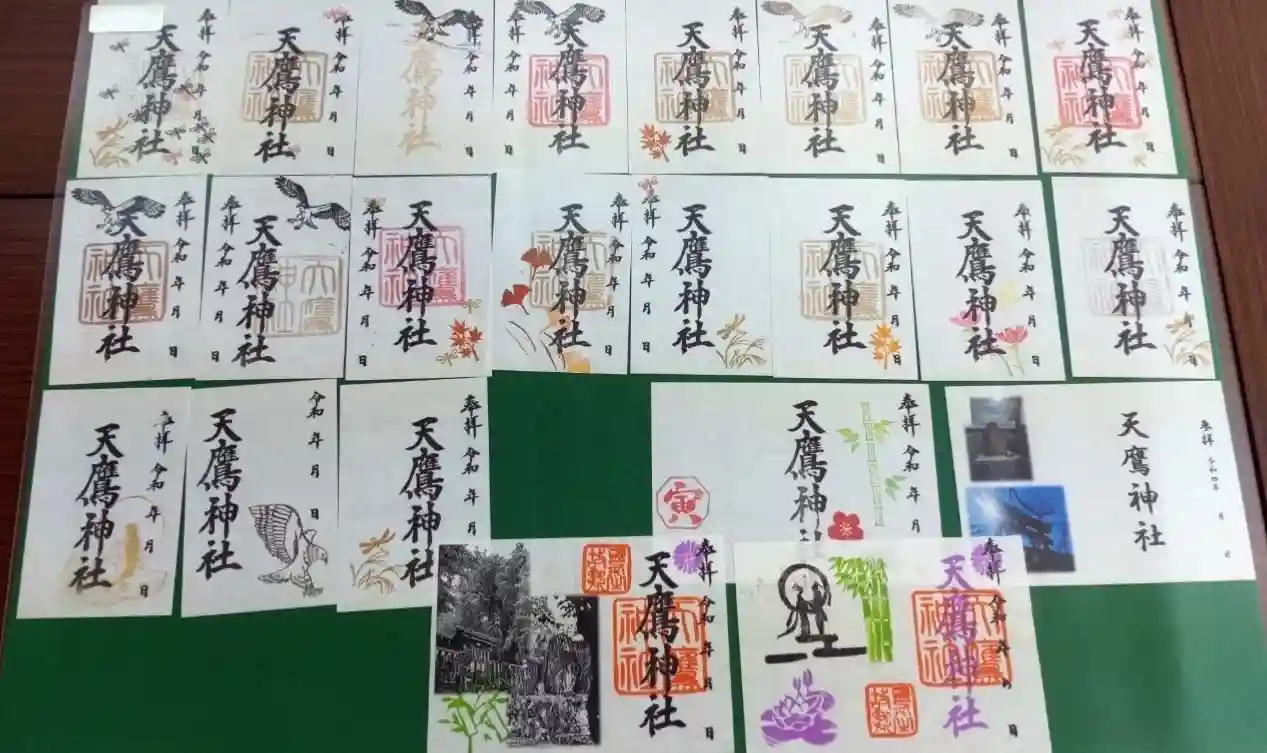 奉拝 令和 年 月 日
天鷹神社
奉拝 令和 年 月 日
天鷹神社
奉拝 令和 年 月 日
天鷹神社
奉拝 令和 年 月 日
天鷹神社
奉拝 令和 年 月 日
天鷹神社
奉拝 令和 年 月 日
天鷹神社
奉拝 令和 年 月 日
天鷹神社
奉拝 令和 年 月 日
天鷹神社
奉拝 令和 年 月 日
天鷹神社
奉拝 令和 年 月 日
天鷹神社
奉拝 令和 年 月 日
天鷹神社
奉拝 令和 年 月 日
天鷹神社
奉拝 令和 年 月 日
天鷹神社
奉拝 令和 年 月 日
天鷹神社
奉拝 令和 年 月 日
天鷹神社
奉拝 令和 年 月 日
天鷹神社
奉拝 令和 年 月 日
天鷹神社
令和 年 月 日
天鷹神社
奉拝 令和 年
天鷹神社
奉拝 令和 年
天鷹神社
寅
奉拝 令和四年 月 日
天鷹神社
奉拝 令和 年 月 日
天鷹神社
奉拝 令和 年 月 日
天鷹神社